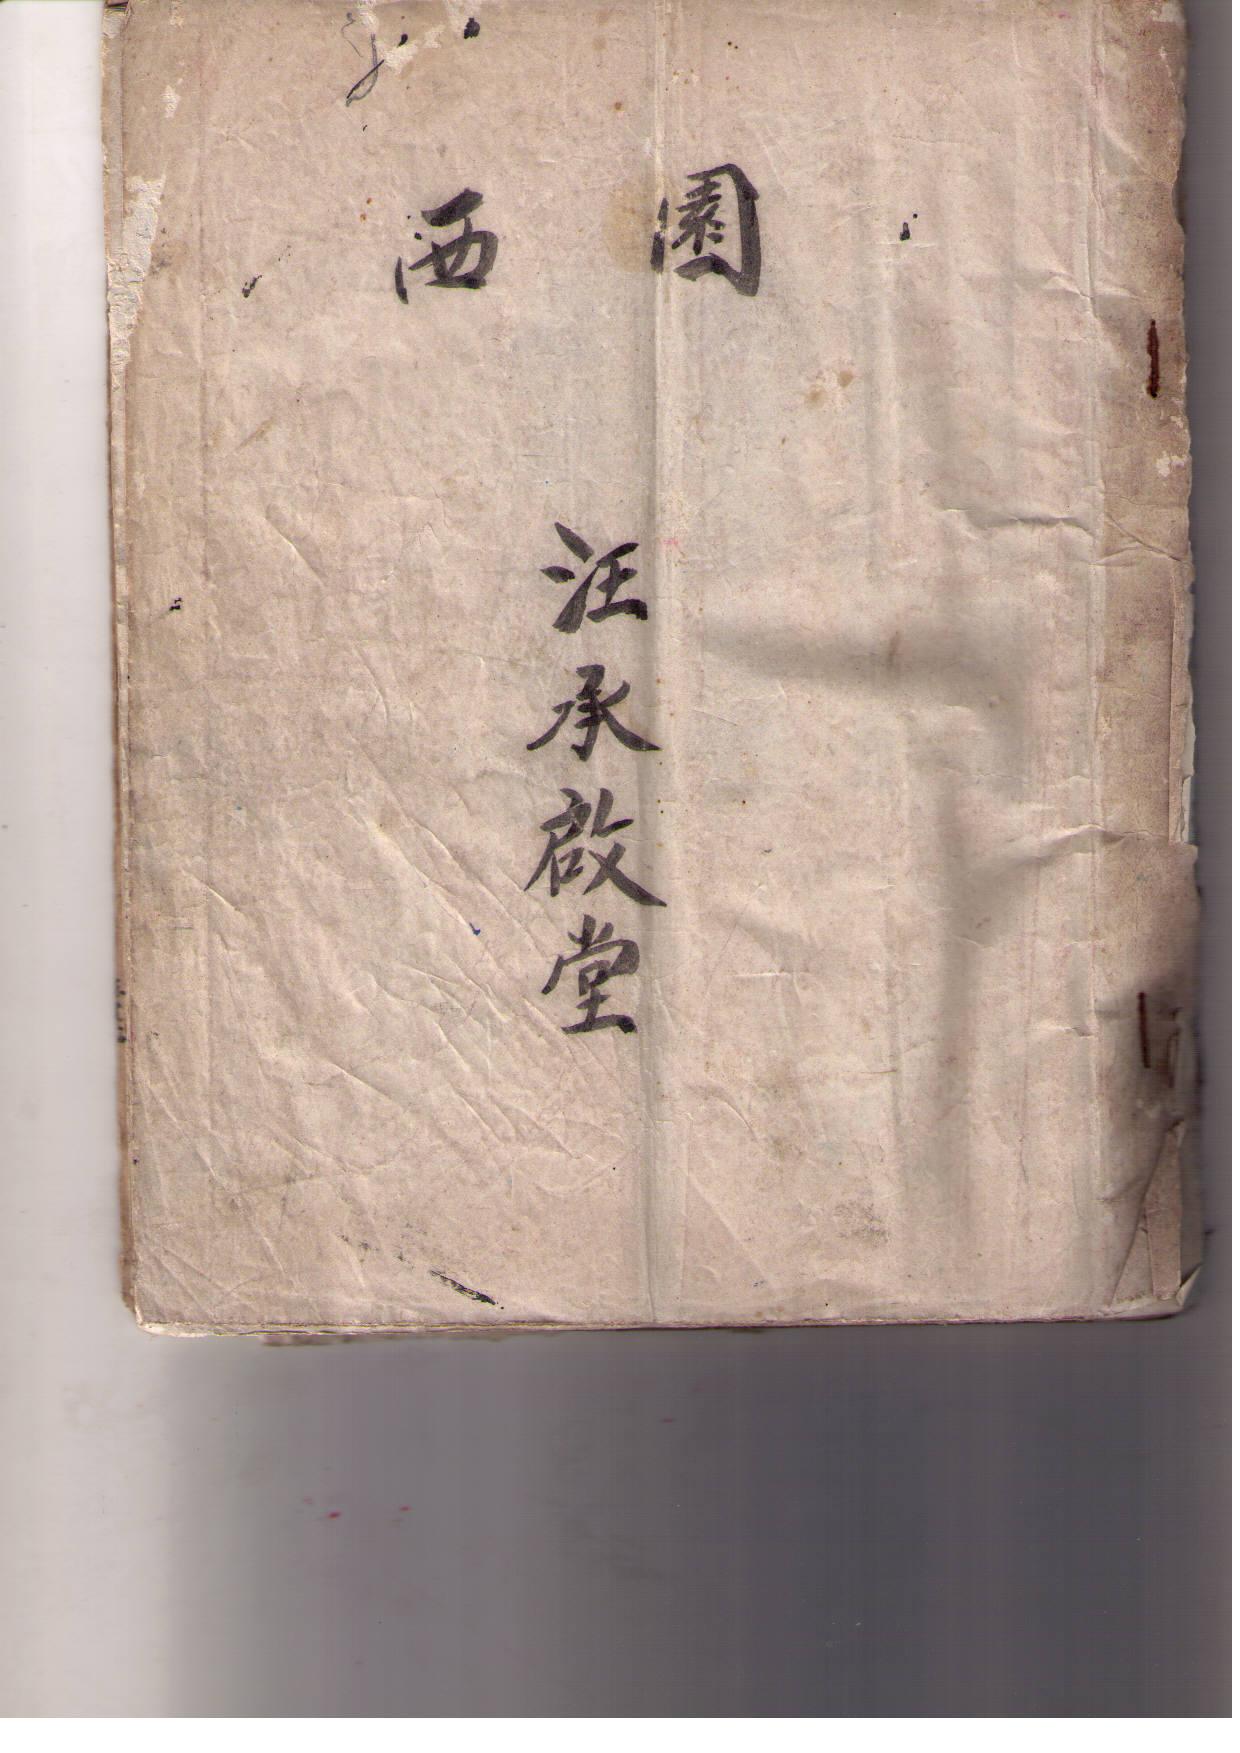 園西
汪承啟堂